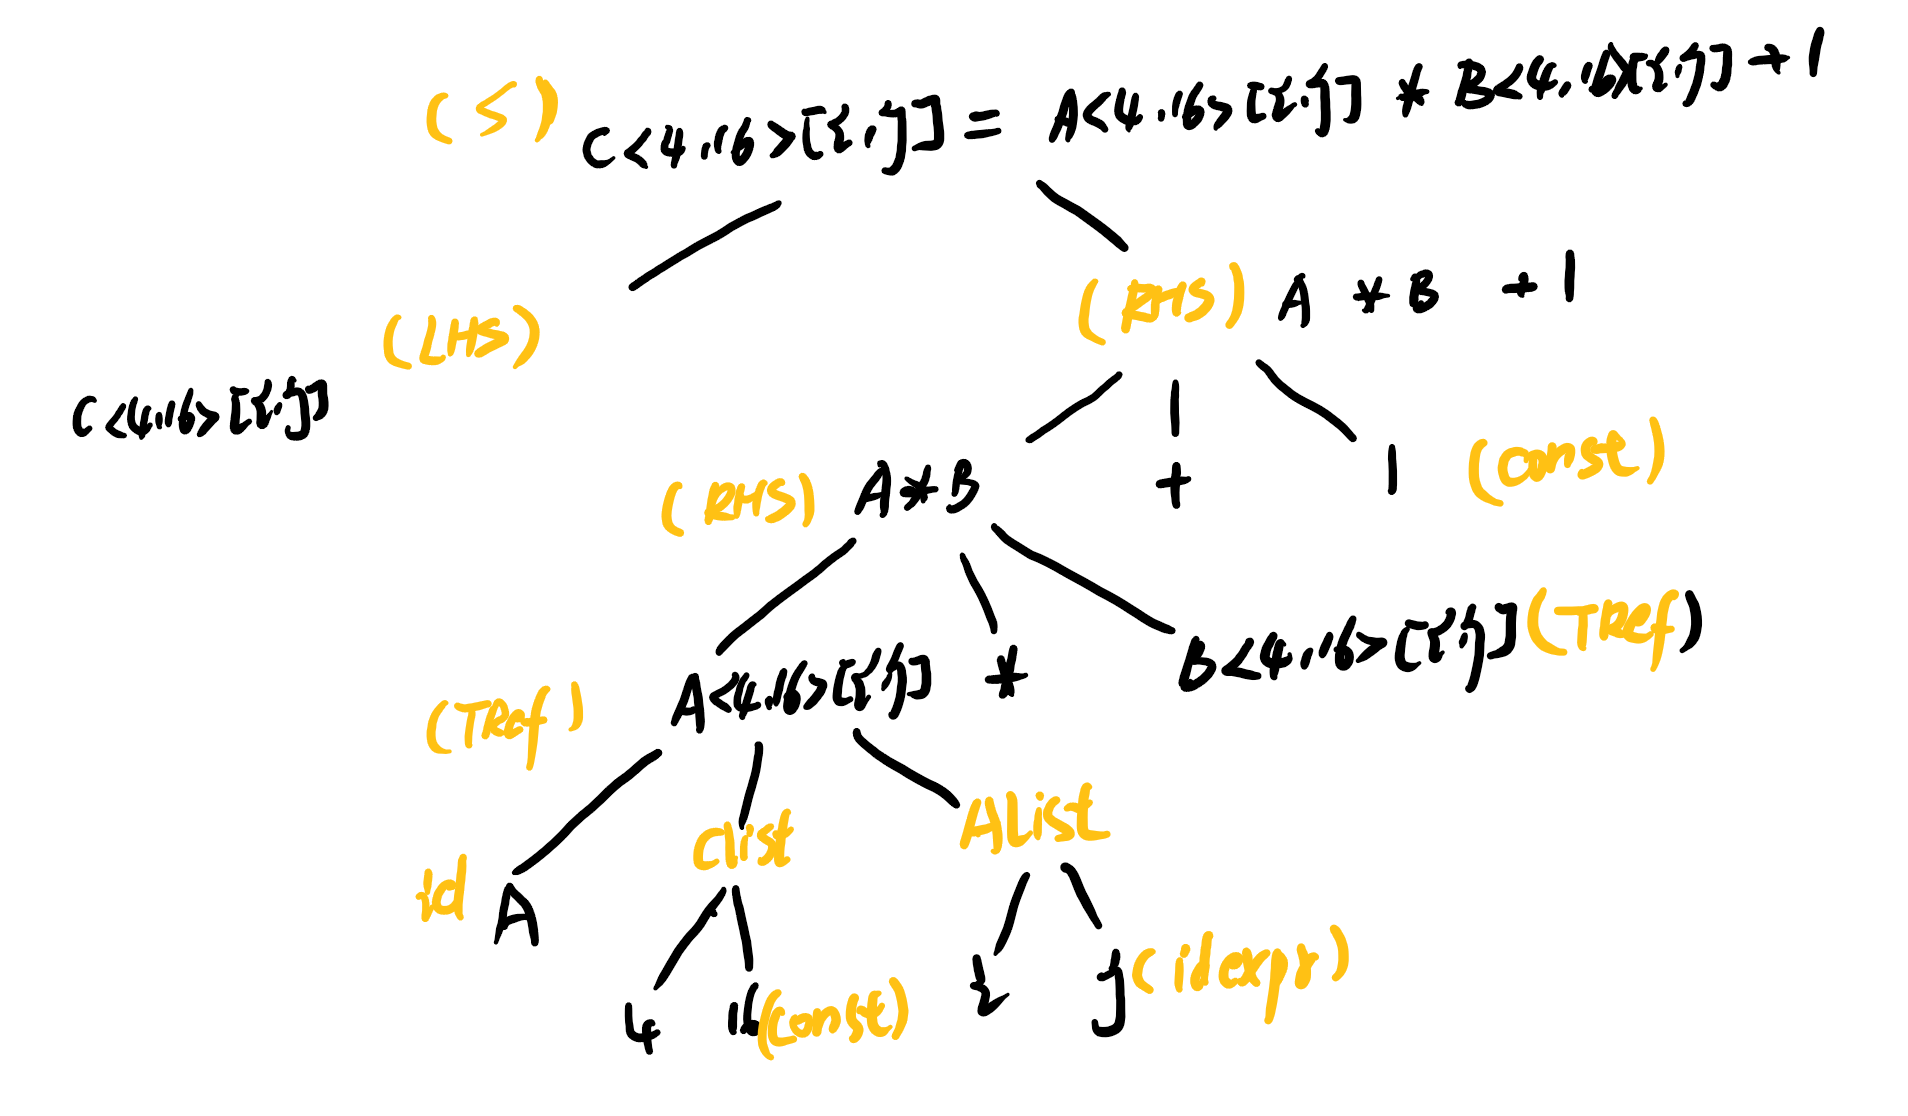 (S) C<4,16>[i,j] = A<4,16>[i,j] * B<4,16>[i,j] + 1
(LHS)
(RHS) A * B + 1
C<4,16>[i,j]
(RHS) A*B
+
1 (const)
(TRef) A<4,16>[i,j]
*
B<4,16>[i,j] (TRef)
id A
Clist
AList
4
16 (const)
i
j (idexpr)